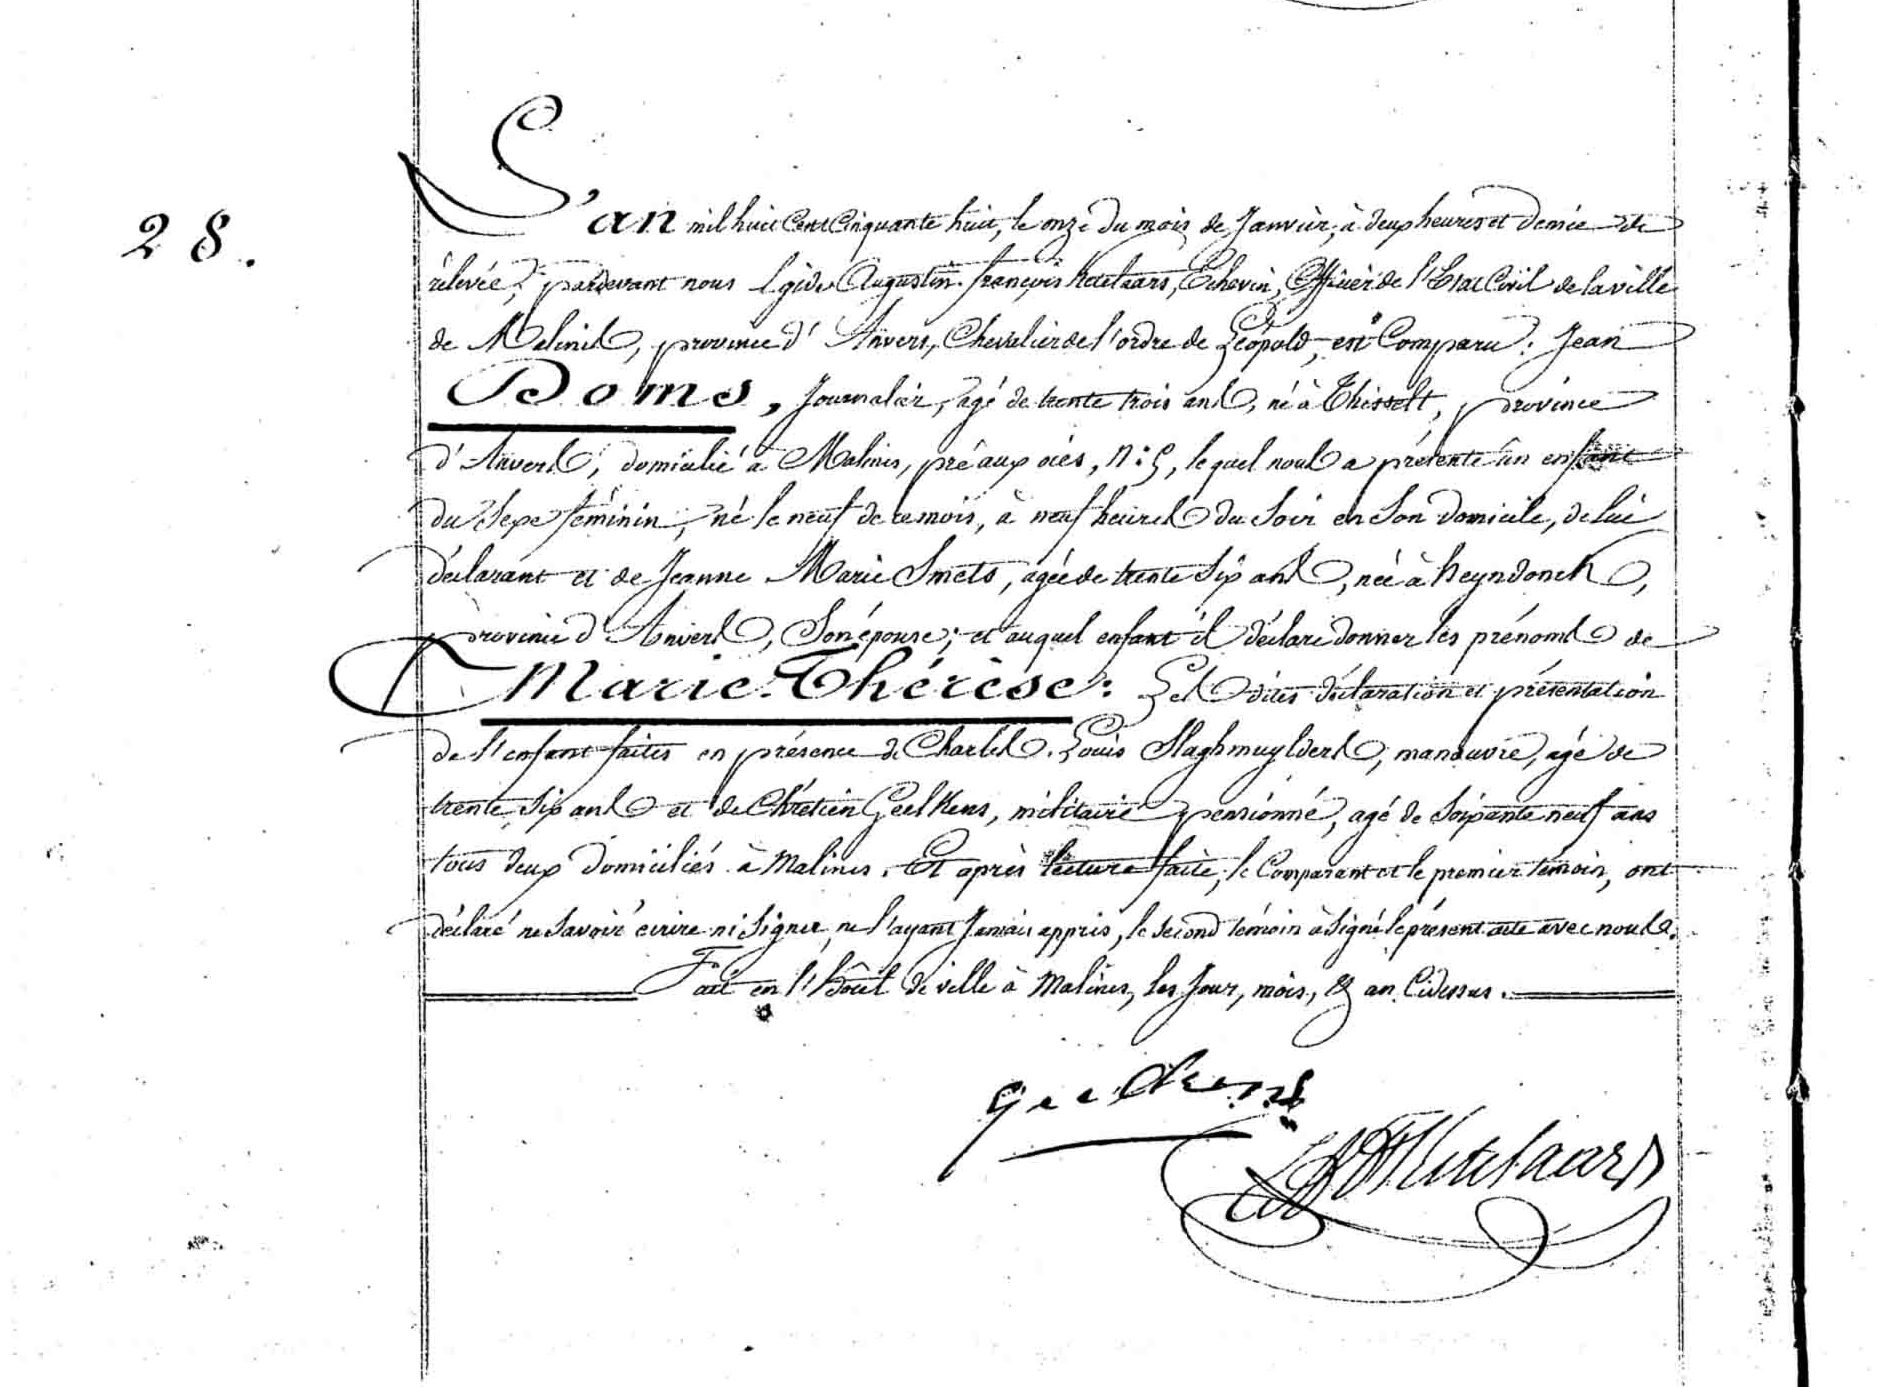 28.
L'an mil huit Cent Cinquante huit, le onze du mois de Janvier, à deux heures et demie de
rélevée, pardevant nous Egide Augustin François Ketelaars, Echevin, Officier de l'Etat Civil de la ville
de Malines, province d'Anvers, Chevalier de l'ordre de Léopold, est Comparu: Jean
Doms, Journalier, agé de trente trois ans, né à Thisselt, province
d'Anvers, domicilié à Malines, pré aux oies, N: 5, lequel nous a présenté un enfant
du Sexe féminin, né le neuf de ce mois, à neuf heures du Soir en Son domicile, de lui
déclarant et de Jeanne Marie Smets, agée de trente Six ans, née à heyndonck,
province d'Anvers, Son épouse; et auquel enfant il déclare donner les prénoms de
Marie-Thérèse: Les dites déclaration et présentation
de l'enfant faites en présence de Charles Louis Slaghmuylders, manouvré, agé de
trente Six ans et de Chrétien Geelkens, militaire pensionné, agé de Soixante neuf ans
tous deux domiciliés à Malines. Et après lecture faite, le Comparant et le premier témoin, ont
déclaré ne Savoir écrire ni Signer, ne l'ayant Jamais appris, le Second témoin à Signé le présent acte avec nous.
Fait en l'hôtel de ville à Malines, les Jour, mois, & an Cidessus.
Geelkens
Ketelaars